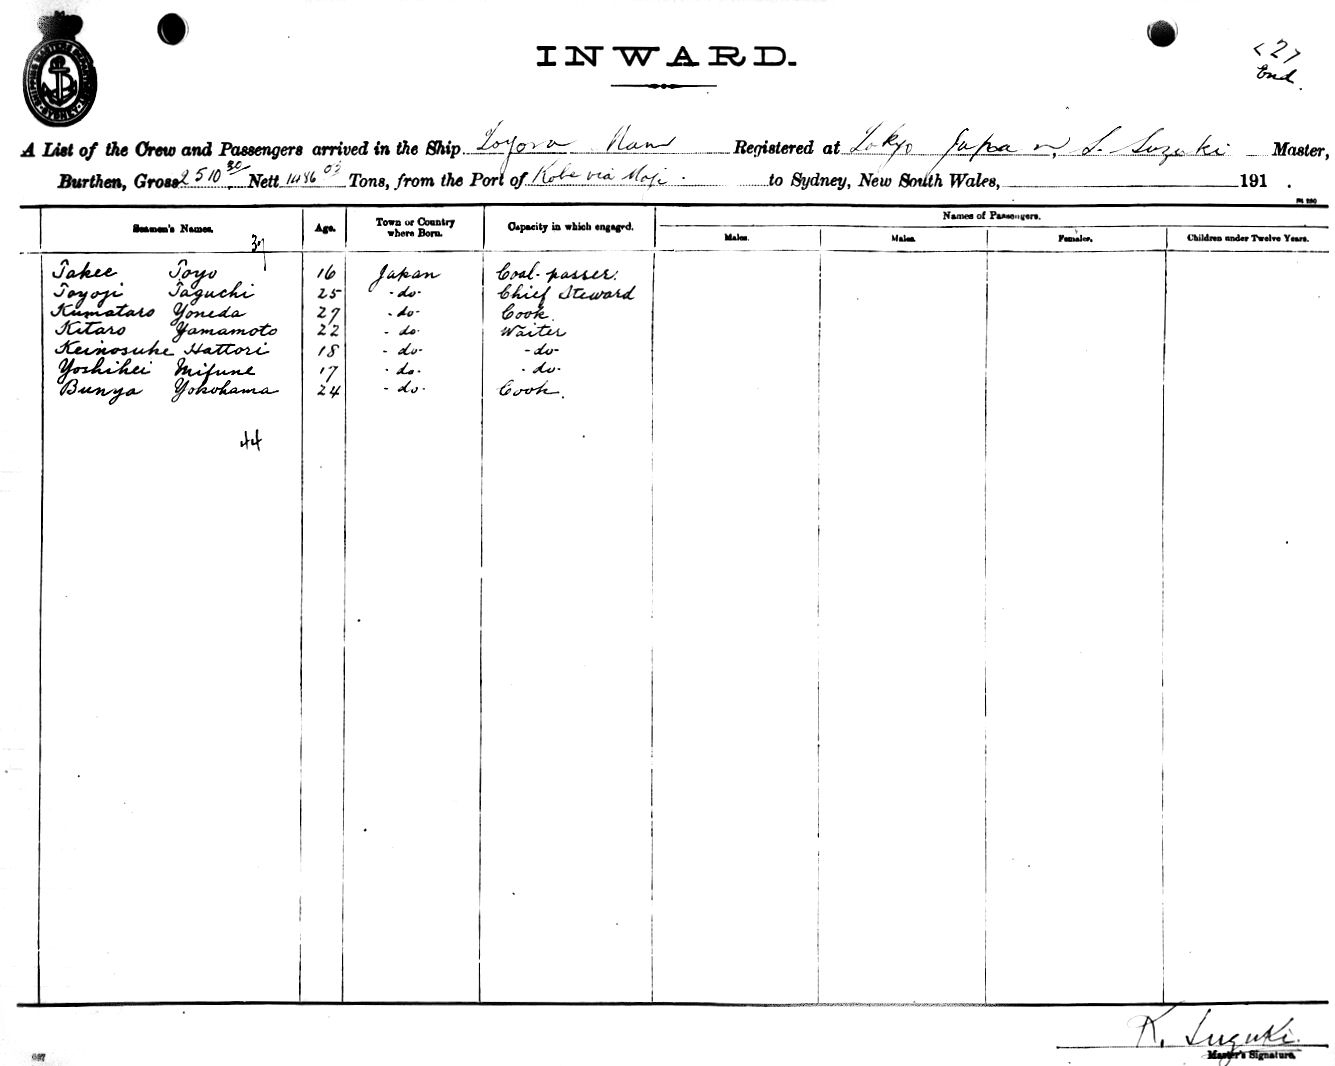 SYDNEY
INWARD.
<2>
End.
A List of the Crew and Passengers arrived in the Ship Toyora Maru Registered at Tokyo Japan, S. Suzuki Master,
Burthen, Gross 2510 30 Nett 1486 03 Tons, from the Port of Kobe via Moji. to Sydney, New South Wales, 191 .
Seamen's Names. Age. Town or Country where Born. Capacity in which engaged. Names of Passengers.
Males. Males. Females. Children under Twelve Years.
37
Takee Toyo 16 Japan Coal-passer.
Toyoji Taguchi 25 -do- Chief Steward
Kumataro Yoneda 27 -do- Cook.
Kitaro Yamamoto 22 -do- Waiter
Keinosuke Hattori 18 -do- -do-
Yoshihei Mifune 17 -do- -do-
Bunya Yokohama 24 -do- Cook.
44
K. Suzuki.
Master's Signature.